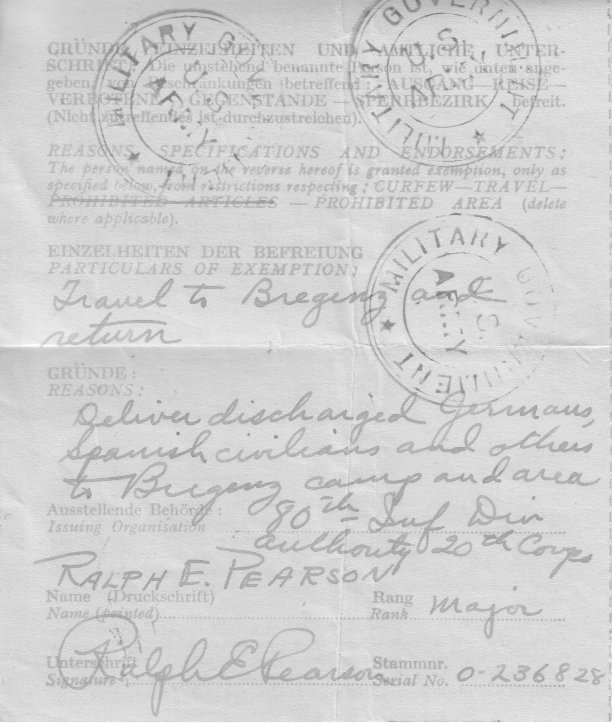 GRÜNDE, EINZELHEITEN UND AMTLICHE UNTER-
SCHRIFT: Die umstehend benannte Person ist, wie unten ange-
geben, von Beschränkungen betreffend: AUSGANG—REISE—
VERBOTENE GEGENSTÄNDE—SPERRBEZIRK befreit.
(Nicht zutreffendes ist durchzustreichen).
REASONS, SPECIFICATIONS AND ENDORSEMENTS:
The person named on the reverse hereof is granted exemption, only as
specified below, from restrictions respecting: CURFEW—TRAVEL—
PROHIBITED ARTICLES — PROHIBITED AREA (delete
where applicable).
MILITARY GOVERNMENT
U.S.
ARMY
MILITARY GOVERNMENT
U.S.
ARMY
EINZELHEITEN DER BEFREIUNG
PARTICULARS OF EXEMPTION:
Travel to Bregenz and
return
MILITARY GOVERNMENT
U.S.
ARMY
GRÜNDE:
REASONS:
Deliver discharged Germans,
Spanish civilians and others
to Bregenz camp and area
Ausstellende Behörde: 80th Inf Div
Issuing Organisation authority 20th Corps
RALPH E. PEARSON
Name (Druckschrift) Rang
Name (printed) Rank Major
Unterschrift Stammnr.
Signature Ralph E Pearson Serial No. O-236828